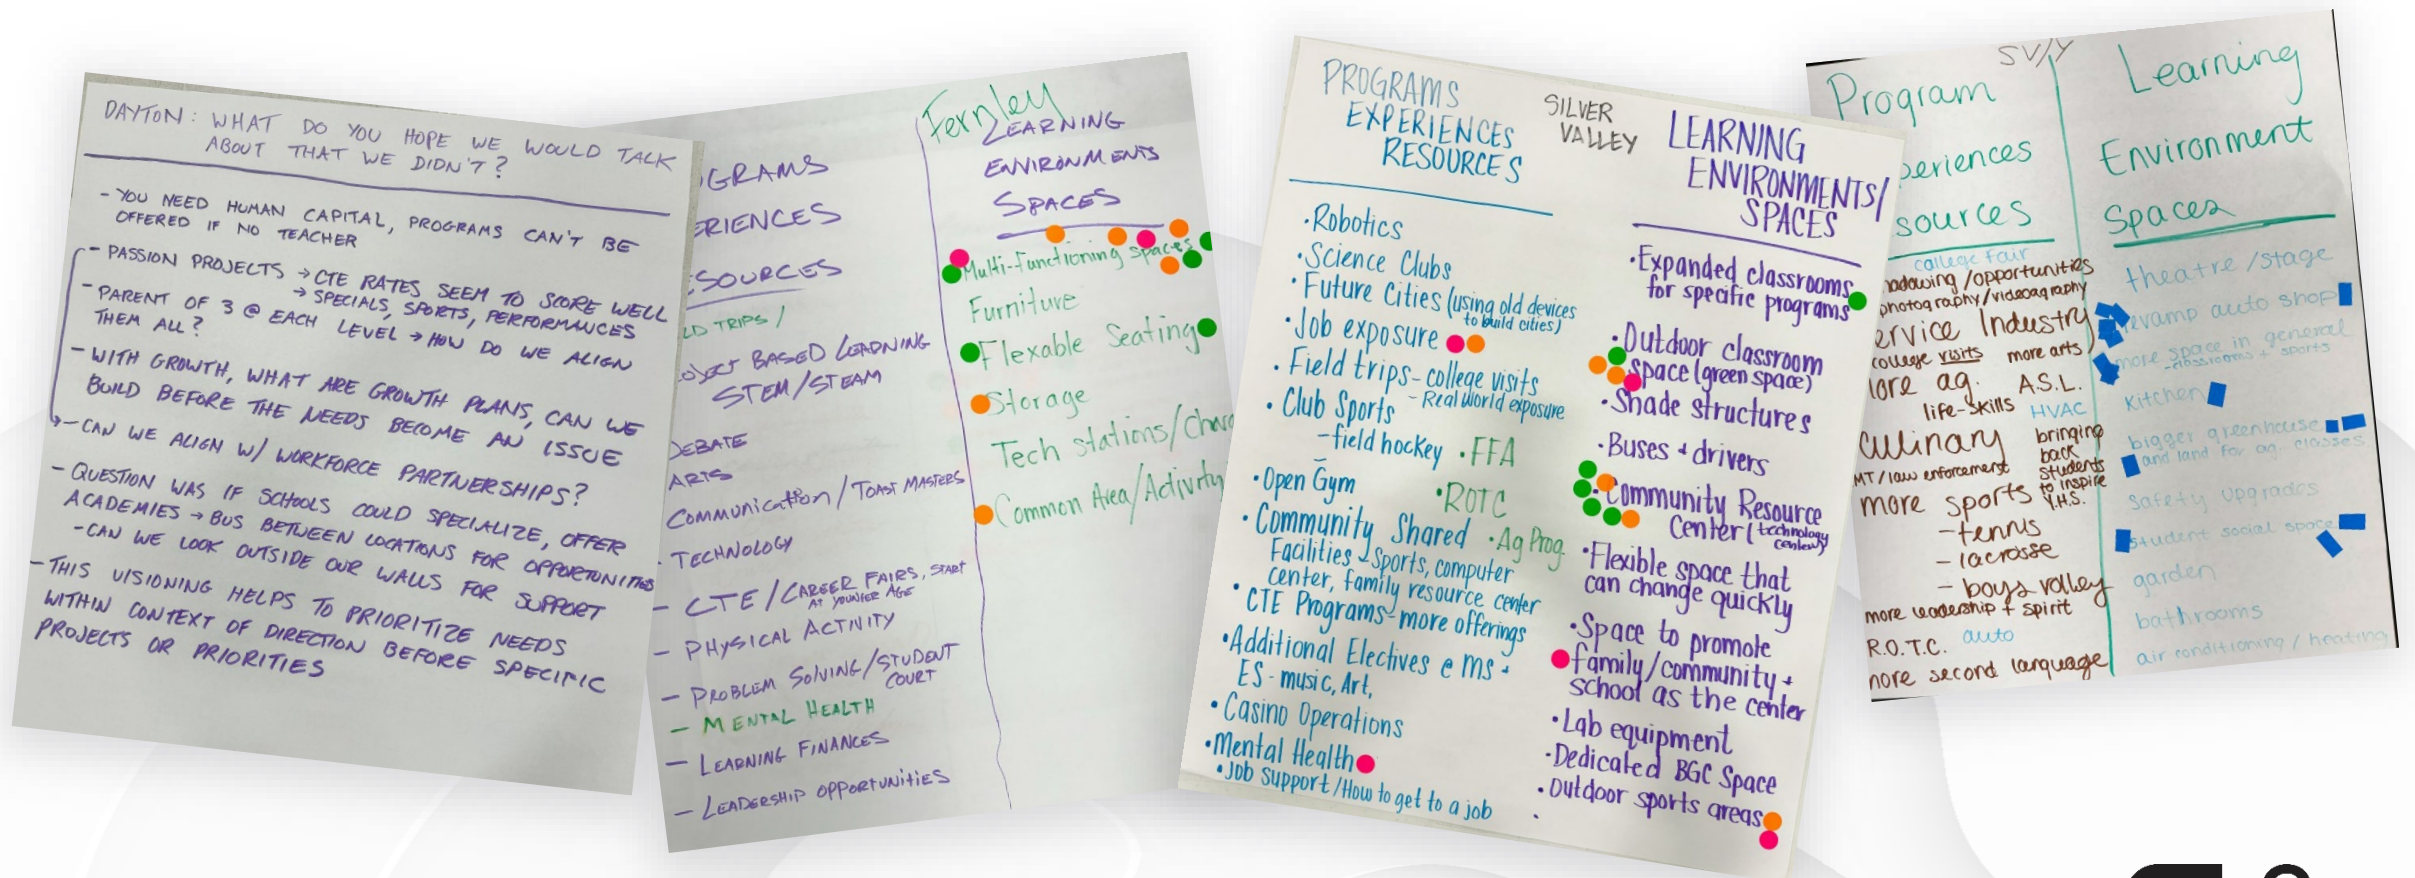 DAYTON: WHAT DO YOU HOPE WE WOULD TALK
ABOUT THAT WE DIDN'T?
- YOU NEED HUMAN CAPITAL, PROGRAMS CAN'T BE
OFFERED IF NO TEACHER
- PASSION PROJECTS → CTE RATES SEEM TO SCORE WELL
→ SPECIALS, SPORTS, PERFORMANCES
- PARENT OF 3 @ EACH LEVEL → HOW DO WE ALIGN
THEM ALL?
- WITH GROWTH, WHAT ARE GROWTH PLANS, CAN WE
BUILD BEFORE THE NEEDS BECOME AN ISSUE
- CAN WE ALIGN W/ WORKFORCE PARTNERSHIPS?
- QUESTION WAS IF SCHOOLS COULD SPECIALIZE, OFFER
ACADEMIES → BUS BETWEEN LOCATIONS FOR OPPORTUNITIES
- CAN WE LOOK OUTSIDE OUR WALLS FOR SUPPORT
- THIS VISIONING HELPS TO PRIORITIZE NEEDS
WITHIN CONTEXT OF DIRECTION BEFORE SPECIFIC
PROJECTS OR PRIORITIES
Fernley
GRAMS
ERIENCES
SOURCES
LD TRIPS /
OJECT BASED LEARNING
STEM/STEAM
DEBATE
ARTS
COMMUNICATION / TOAST MASTERS
- TECHNOLOGY
- CTE / CAREER FAIRS, START
AT YOUNGER AGE
- PHYSICAL ACTIVITY
- PROBLEM SOLVING/STUDENT
COURT
- MENTAL HEALTH
- LEARNING FINANCES
- LEADERSHIP OPPORTUNITIES
LEARNING
ENVIRONMENTS
SPACES
Multi-Functioning spaces
Furniture
Flexable Seating
Storage
Tech stations/Char
Common Area/Activity
PROGRAMS
EXPERIENCES
RESOURCES
SILVER
VALLEY
• Robotics
• Science Clubs
• Future Cities (using old devices
to build cities)
• Job exposure
• Field trips - college visits
- Real World exposure
• Club Sports
- field hockey
• FFA
• ROTC
• Ag Prog.
• Open Gym
• Community Shared
Facilities - Sports, computer
center, family resource center
• CTE Programs - more offerings
• Additional Electives @ MS +
ES - music, Art,
• Casino Operations
• Mental Health
• Job support / How to get to a job
LEARNING
ENVIRONMENTS/
SPACES
• Expanded classrooms
for specific programs
• Outdoor classroom
Space (green space)
• Shade structures
• Buses + drivers
• Community Resource
Center (technology
center)
• Flexible space that
can change quickly
• Space to promote
family/community +
school as the center
• Lab equipment
• Dedicated BGC Space
• Outdoor sports areas
SV/Y
Program
periences
sources
college fair
hadowing / opportunities
photography/videography
ervice Industry
college visits more arts
ore ag. A.S.L.
life-skills HVAC
culinary
bringing
back
students
to inspire
Y.H.S.
MT/law enforcement
more sports
- tennis
- lacrosse
- boys volley
more leadership + spirit
R.O.T.C. auto
more second language
Learning
Environment
Spaces
theatre / stage
revamp auto shop
more space in general
- classrooms + sports
kitchen
bigger greenhouse
and land for ag. classes
safety upgrades
student social space
garden
bathrooms
air conditioning / heating